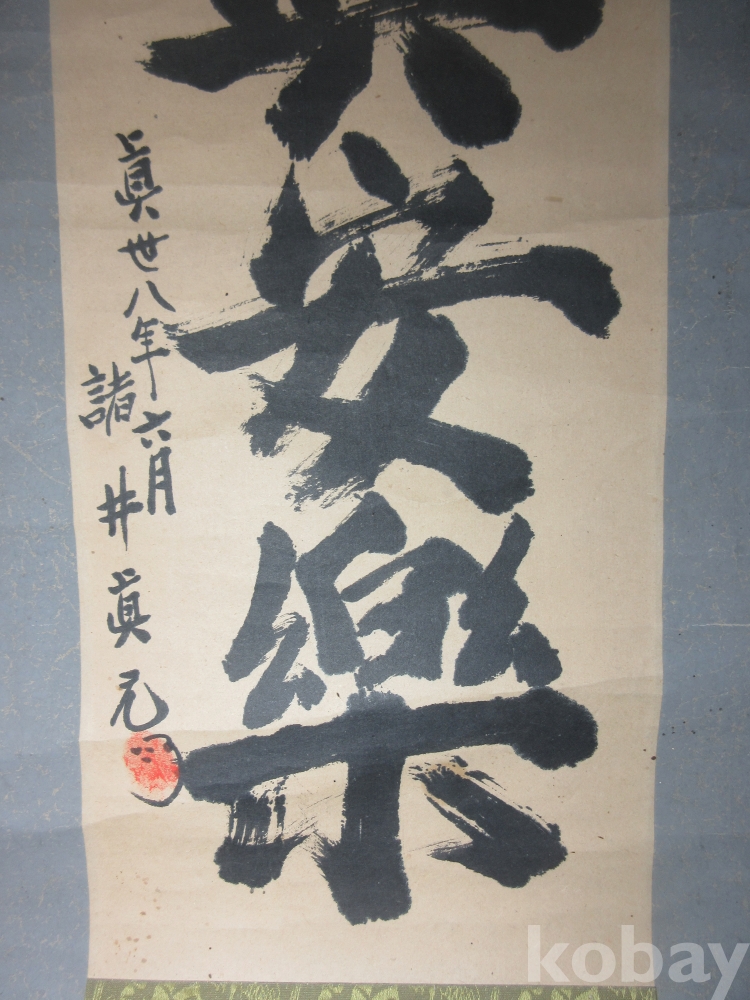 安樂
眞卅八年六月
諸井眞元
kobay